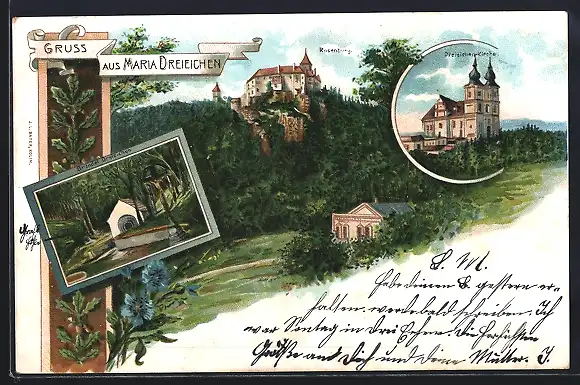 GRUSS
AUS MARIA DREIEICHEN
Rosenburg.
Dreieichen-Kirche
L. M.
Habe deinen B. gestern er-
halten. werde bald schreiben. Ich
war Sontag in Drei Eichen. Die herzlichsten
Grüße an Dich und Deine Mutter. J.